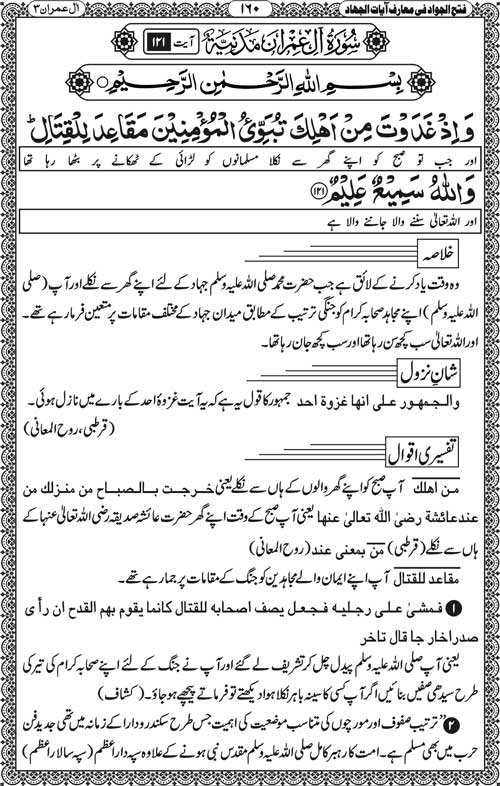 فتح الجواد فی معارف آیات الجہاد ۱۶۰ آل عمران ۳
سُوْرَةُ اٰلِ عِمْرٰنَ مَدَنِیَّةٌ آیت ۱۲۱
بِسْمِ اللهِ الرَّحْمٰنِ الرَّحِیْمِ
وَاِذْ غَدَوْتَ مِنْ اَهْلِكَ تُبَوِّئُ الْمُؤْمِنِيْنَ مَقَاعِدَ لِلْقِتَالِ ؕ
اور جب تو صبح کو اپنے گھر سے نکلا مسلمانوں کو لڑائی کے ٹھکانے پر بٹھا رہا تھا
وَاللهُ سَمِيْعٌ عَلِيْمٌ ۱۲۱
اور اللہ تعالیٰ سننے والا جاننے والا ہے
خلاصہ
وہ وقت یاد کرنے کے لائق ہے جب حضرت محمد صلی اللہ علیہ وسلم جہاد کے لئے اپنے گھر سے نکلے اور آپ (صلی
اللہ علیہ وسلم) اپنے مجاہد صحابہ کرام کو جنگی ترتیب کے مطابق میدان جہاد کے مختلف مقامات پر متعین فرما رہے تھے۔
اور اللہ تعالیٰ سب کچھ سن رہا تھا اور سب کچھ جان رہا تھا۔
شان نزول
والجمهور على انها غزوة احد جمہور کا قول یہ ہے کہ یہ آیت غزوۂ احد کے بارے میں نازل ہوئی۔
(قرطبی، روح المعانی)
تفسیری اقوال
من اهلك آپ صبح کو اپنے گھر والوں کے ہاں سے نکلے یعنی خرجت بالصباح من منزلك من
عند عائشة رضی الله تعالیٰ عنها یعنی آپ صبح کے وقت اپنے گھر حضرت عائشہ صدیقہ رضی اللہ تعالیٰ عنہا کے
ہاں سے نکلے (قرطبی) من بمعنی عند (روح المعانی)
مقاعد للقتال آپ اپنے ایمان والے مجاہدین کو جنگ کے مقامات پر جما رہے تھے۔
۱ فمشیٰ علی رجلیه فجعل یصف اصحابه للقتال کانما یقوم بهم القدح ان رأی
صدرا خارجا قال تاخر
یعنی آپ صلی اللہ علیہ وسلم پیدل چل کر تشریف لے گئے اور آپ نے جنگ کے لئے اپنے صحابہ کرام کی تیر کی
طرح سیدھی صفیں بنائیں اگر آپ کسی کا سینہ باہر نکلا ہوا دیکھتے تو فرماتے پیچھے ہو جاؤ۔ (کشاف)
۲ ”ترتیب صفوف اور مورچوں کی مناسب موضعیت کی اہمیت جس طرح سکندر و دارا کے زمانہ میں تھی جدید فن
حرب میں بھی مسلم ہے۔ امت کا رہبر کامل صلی اللہ علیہ وسلم مقدس نبی ہونے کے علاوہ سپہ دار اعظم (سپہ سالار اعظم)